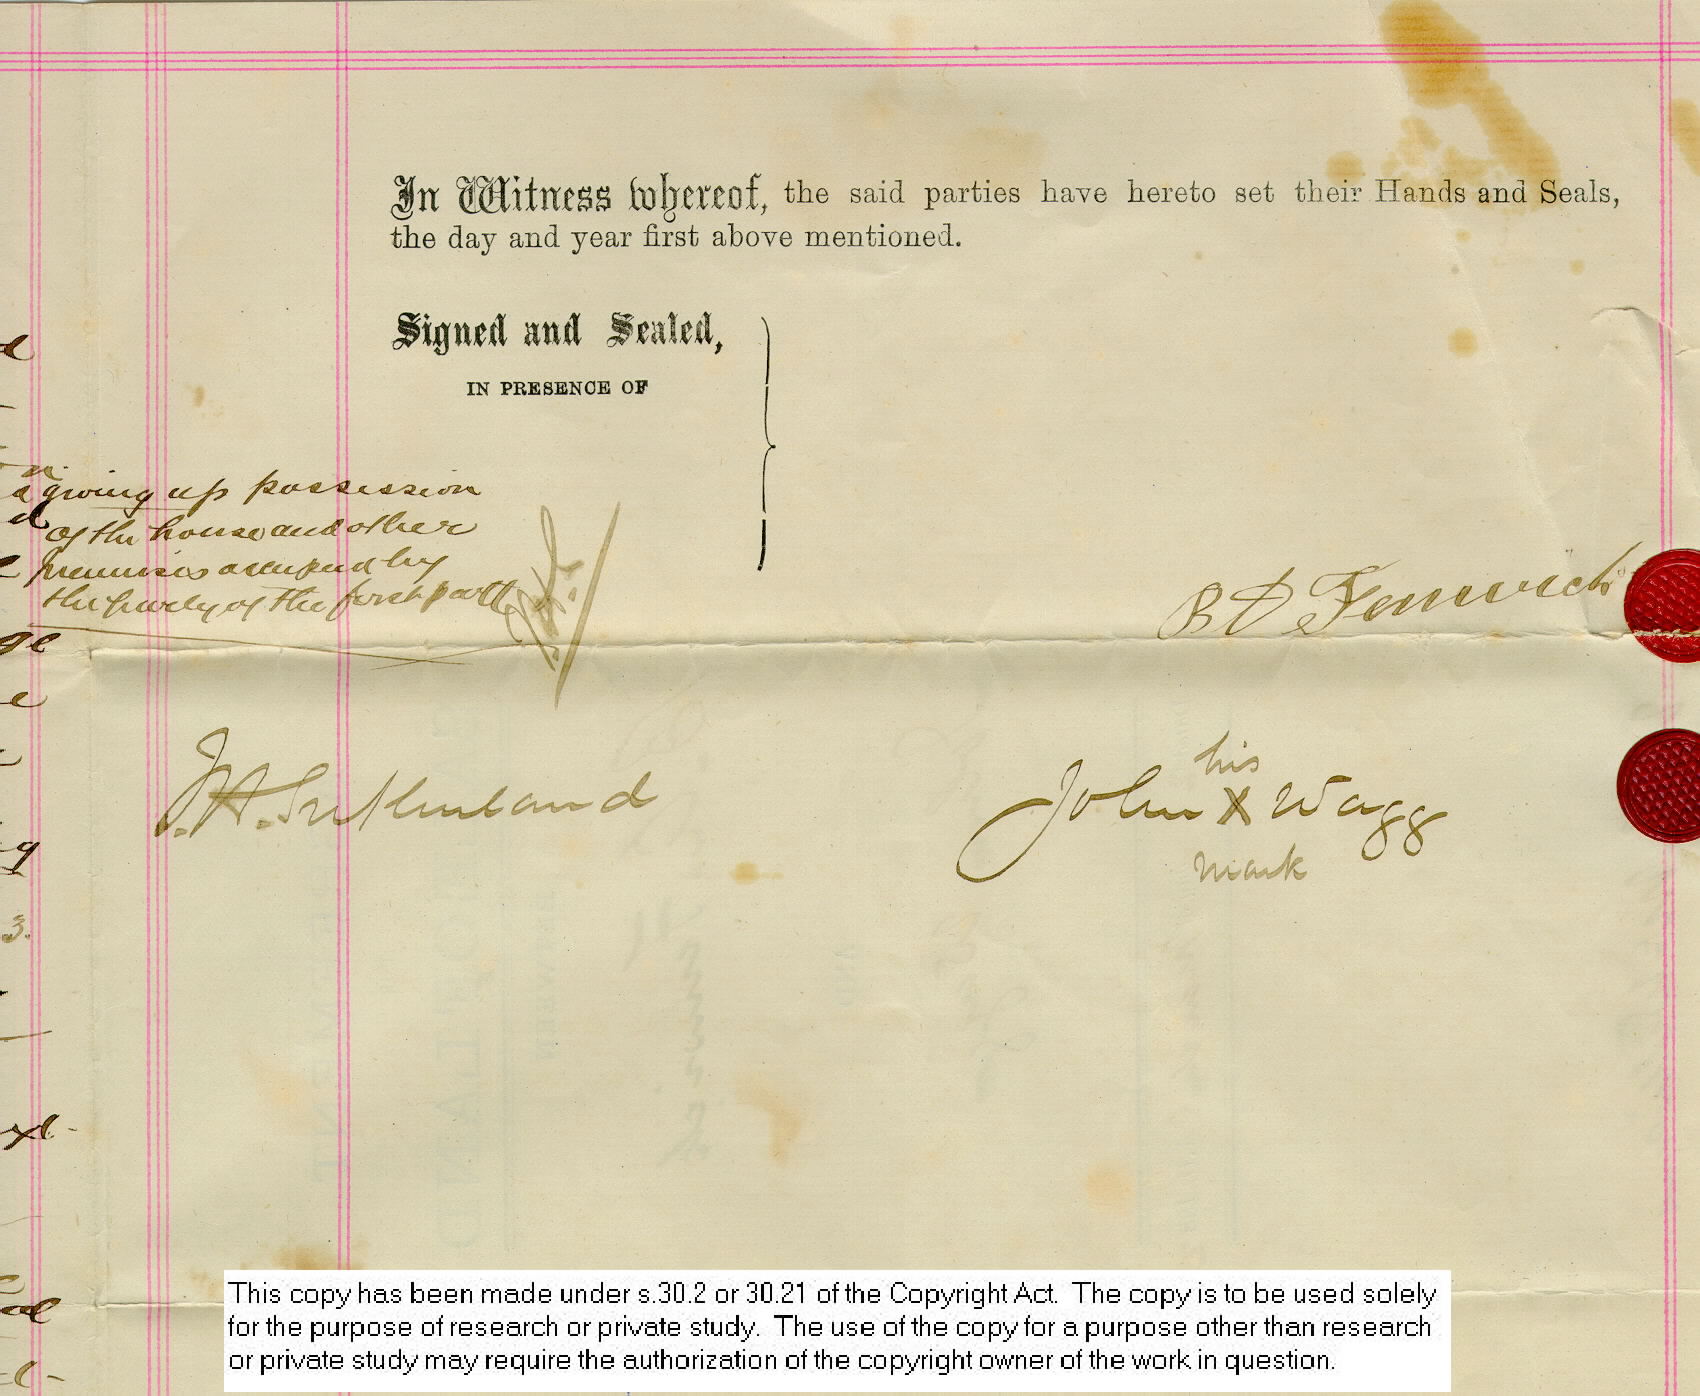 In Witness whereof, the said parties have hereto set their Hands and Seals,
the day and year first above mentioned.
Signed and Sealed,
IN PRESENCE OF
giving up possession
of the house and other
premises occupied by
the party of the first part
B D Fenwick
J. A. Sutherland
his
John X Wagg
mark
3.
This copy has been made under s.30.2 or 30.21 of the Copyright Act. The copy is to be used solely
for the purpose of research or private study. The use of the copy for a purpose other than research
or private study may require the authorization of the copyright owner of the work in question.